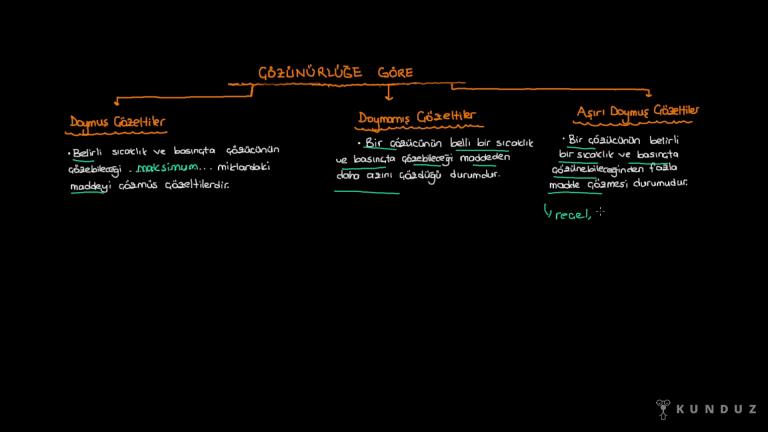 ÇÖZÜNÜRLÜĞE GÖRE
Doymuş Çözeltiler
• Belirli sıcaklık ve basınçta çözücünün
çözebileceği . maksimum... miktardaki
maddeyi çözmüş çözeltilerdir.
Doymamış Çözeltiler
• Bir çözücünün belli bir sıcaklık
ve basınçta çözebileceği maddeden
daha azını çözdüğü durumdur.
Aşırı Doymuş Çözeltiler
• Bir çözücünün belirli
bir sıcaklık ve basınçta
çözünebileceğinden fazla
madde çözmesi durumudur.
reçel,
KUNDUZ